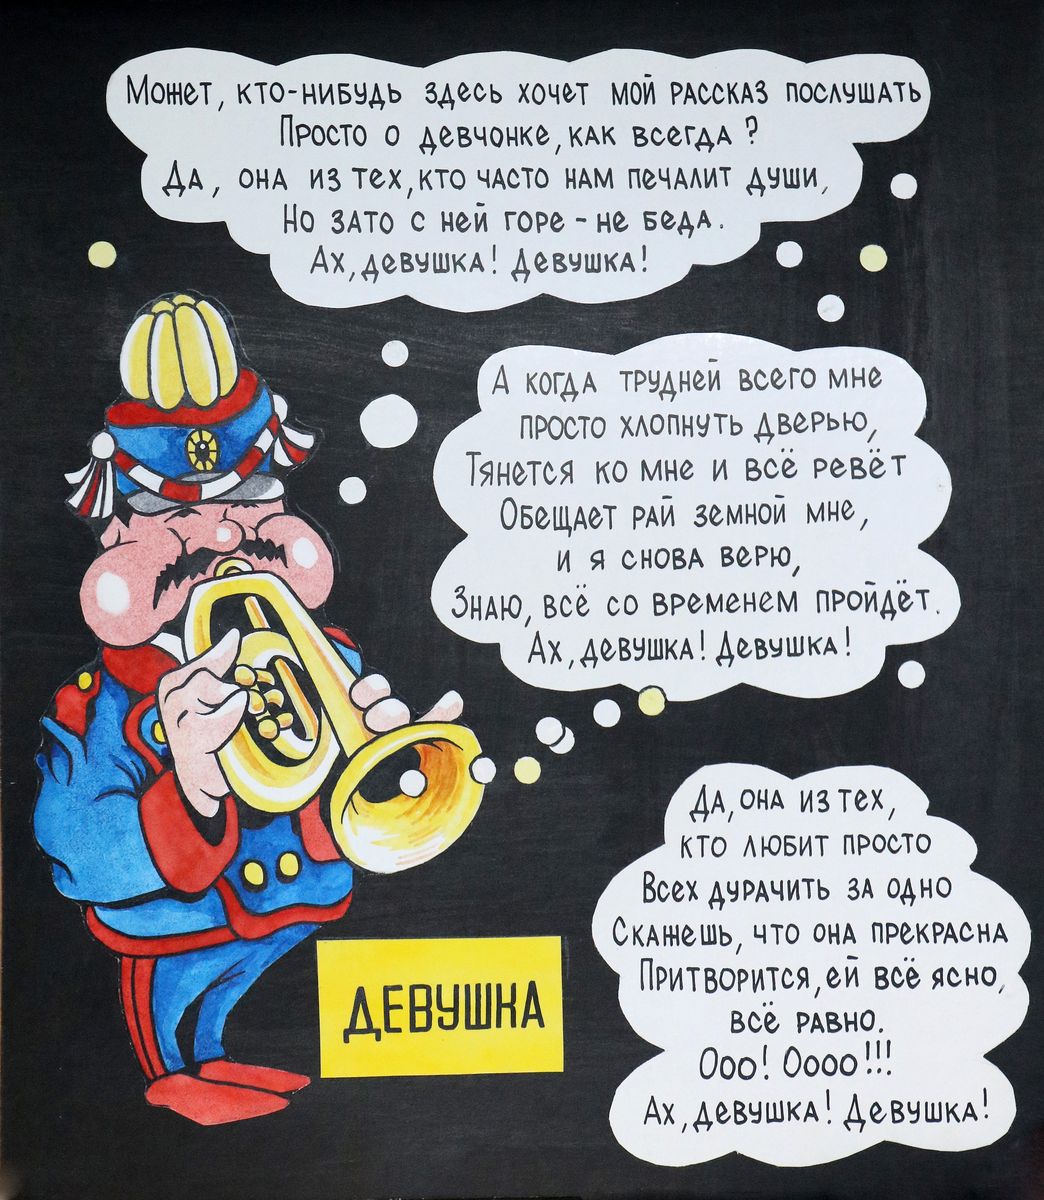 Может, кто-нибудь здесь хочет мой рассказ послушать
Просто о девчонке, как всегда?
Да, она из тех, кто часто нам печалит души,
Но зато с ней горе - не беда.
Ах, девушка! Девушка!
А когда трудней всего мне
просто хлопнуть дверью,
Тянется ко мне и всё ревёт
Обещает рай земной мне,
и я снова верю,
Знаю, всё со временем пройдёт.
Ах, девушка! Девушка!
Да, она из тех,
кто любит просто
Всех дурачить за одно
Скажешь, что она прекрасна
Притворится, ей всё ясно,
всё равно.
Ооо! Оооо!!!
Ах, девушка! Девушка!
ДЕВУШКА